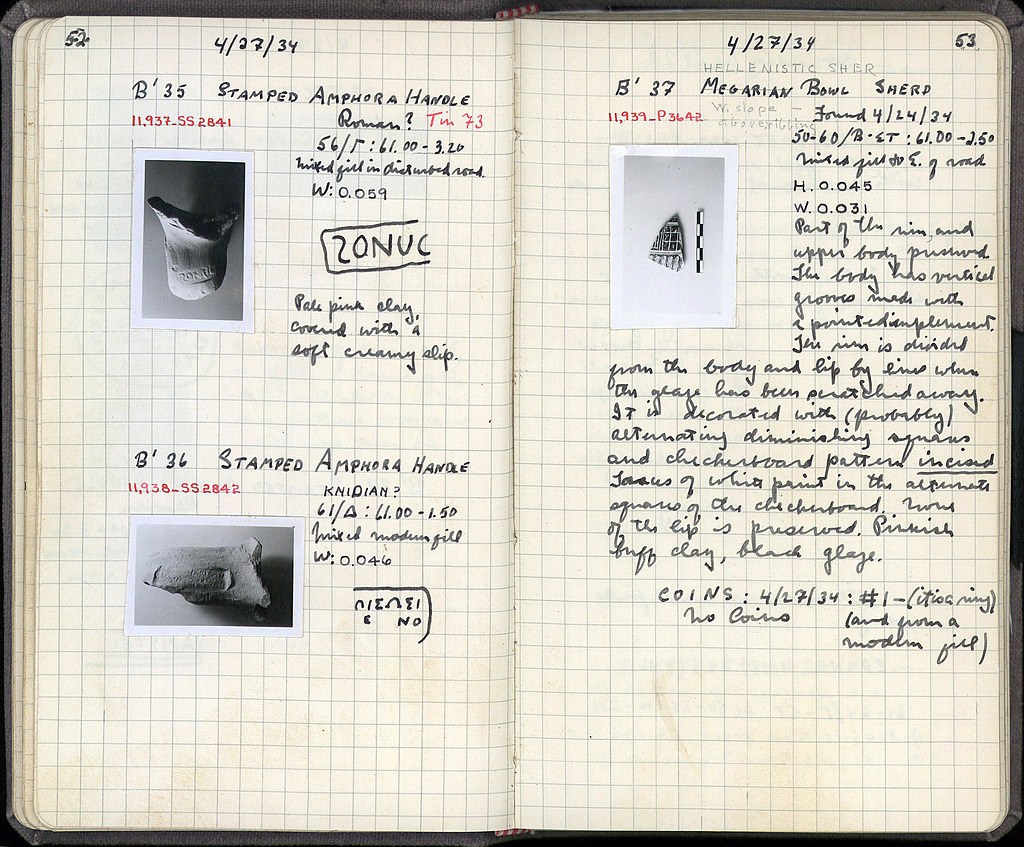 52
4/27/34
B' 35 STAMPED AMPHORA HANDLE
11,937-SS2841
Roman? Tin 73
56/Γ : 61.00 - 3.20
Mixed fill in disturbed road.
W: 0.059
ZONUC
Pale pink clay,
covered with a
soft creamy slip.
B' 36 STAMPED AMPHORA HANDLE
11,938-SS2842
KNIDIAN?
61/Δ : 61.00 - 1.50
Mixed modern fill
W: 0.046
53
4/27/34
HELLENISTIC SHER
B' 37 MEGARIAN BOWL SHERD
11,939-P3642
W. slope -
above ribbing
Found 4/24/34
50-60/B-ET : 61.00 - 3.50
Mixed fill to E. of road
H. 0.045
W. 0.031
Part of the rim, and
upper body preserved
The body has vertical
grooves made with
a pointed implement.
The rim is divided
from the body and lip by lines where
the glaze has been scratched away.
It is decorated with (probably)
alternating diminishing squares
and checkerboard pattern incised
Traces of white paint in the alternate
squares of the checkerboard. None
of the lip is preserved. Pinkish
buff clay, black glaze.
COINS : 4/27/34 : #1 - (it is a ring)
No Coins (and from a
modern fill)